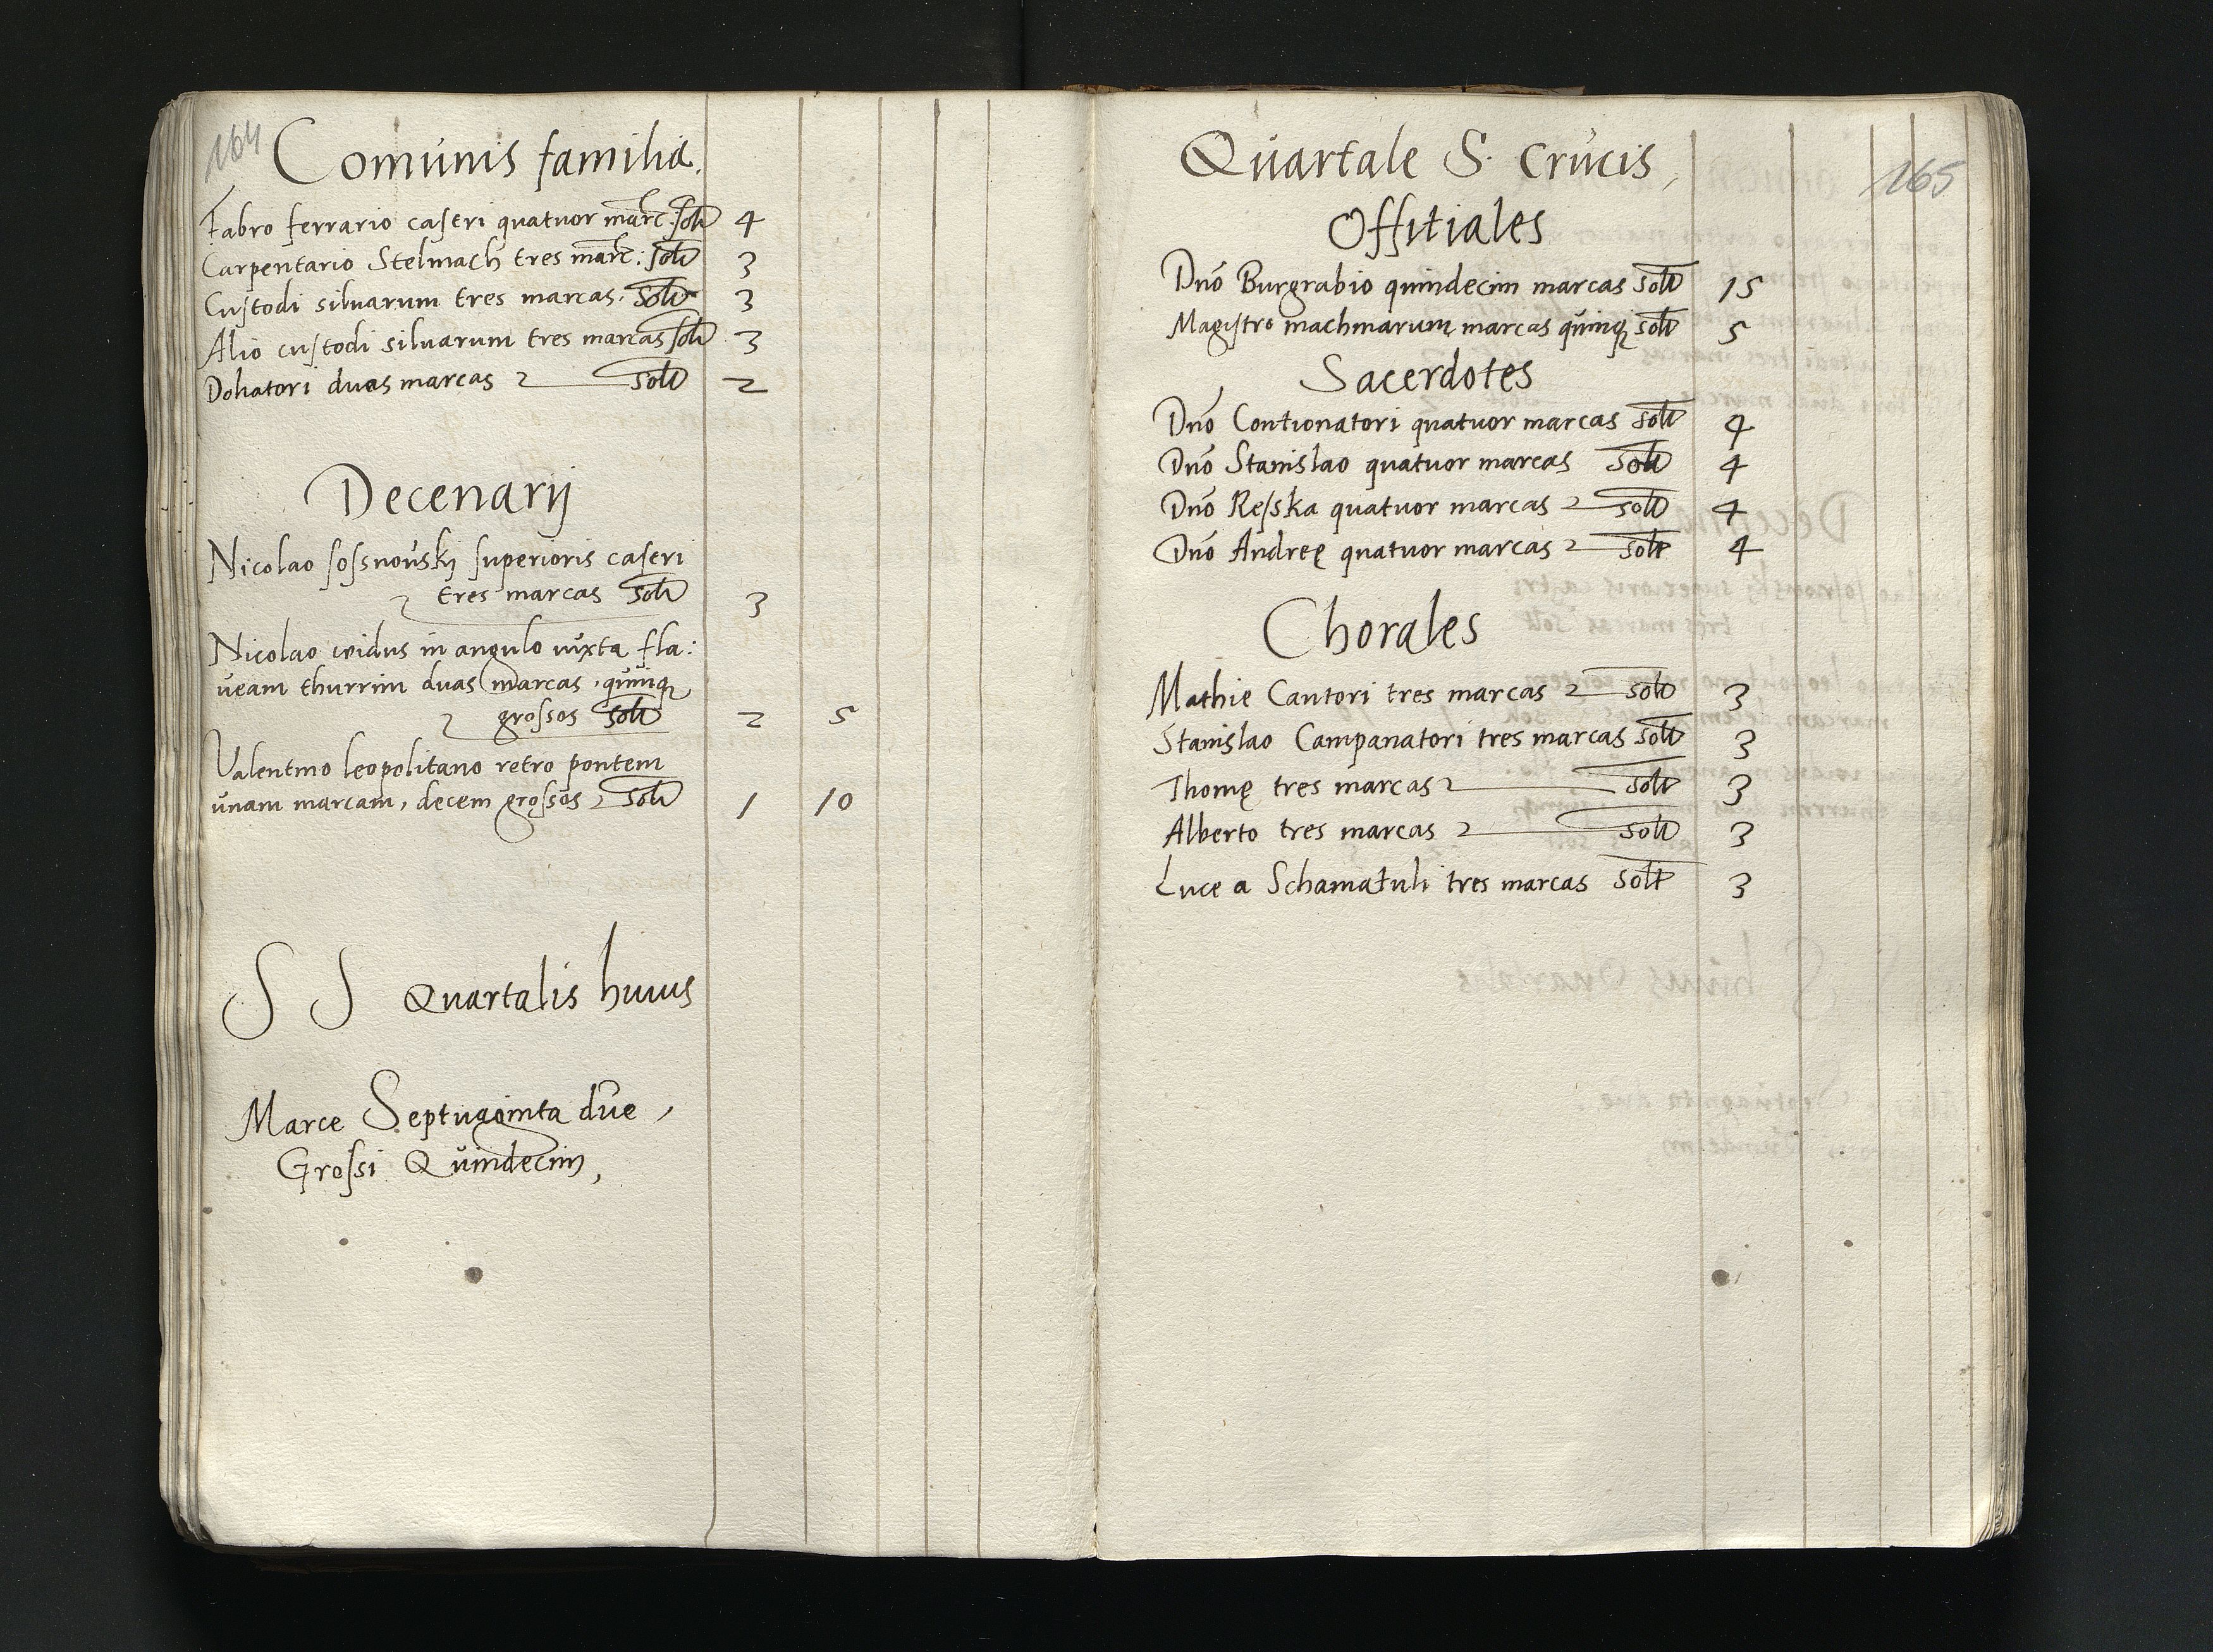 164
Comunis familia.
Fabro ferrario caseri quatuor marc: solt 4
Carpentario Stelmach tres marc: solt 3
Custodi siluarum tres marcas. solt 3
Alio custodi siluarum tres marcas solt 3
Doliatori duas marcas solt 2
Decenarij
Nicolao sossnousky superioris caseri
tres marcas solt 3
Nicolao vidus in angulo iuxta fla:
ueam thurrim duas marcas, quinq
grossos solt 2 5
Valentino leopolitano retro pontem
unam marcam, decem grossos, solt 1 10
S S Quartalis huius
Marce Septuaginta due,
Grossi Quindecim,
165
Quartale S. Crucis,
Offitiales
Dno Burgrabio quindecim marcas solt 15
Magistro machinarum marcas quinq solt 5
Sacerdotes
Dno Contionatori quatuor marcas solt 4
Dno Stanislao quatuor marcas solt 4
Dno Resska quatuor marcas solt 4
Dno Andreę quatuor marcas solt 4
Chorales
Mathie Cantori tres marcas solt 3
Stanislao Campanatori tres marcas solt 3
Thomę tres marcas solt 3
Alberto tres marcas solt 3
Luce a Schamatuli tres marcas solt 3